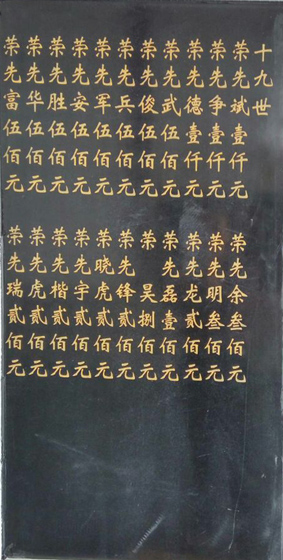 十九世
荣先斌壹仟元
荣先争壹仟元
荣先德壹仟元
荣先武伍佰元
荣先俊伍佰元
荣先兵伍佰元
荣先军伍佰元
荣先安伍佰元
荣先胜伍佰元
荣先华伍佰元
荣先富伍佰元
荣先余叁佰元
荣先明叁佰元
荣先龙贰佰元
荣先磊壹佰元
荣昊捌佰元
荣先锋贰佰元
荣晓虎贰佰元
荣先宇贰佰元
荣先楷贰佰元
荣先虎贰佰元
荣先瑞贰佰元